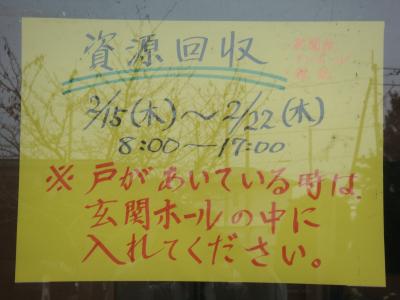 資源回収
2/15(木)～2/22(木)
8:00―17:00
※戸があいている時は、
玄関ホールの中に
入れてください。